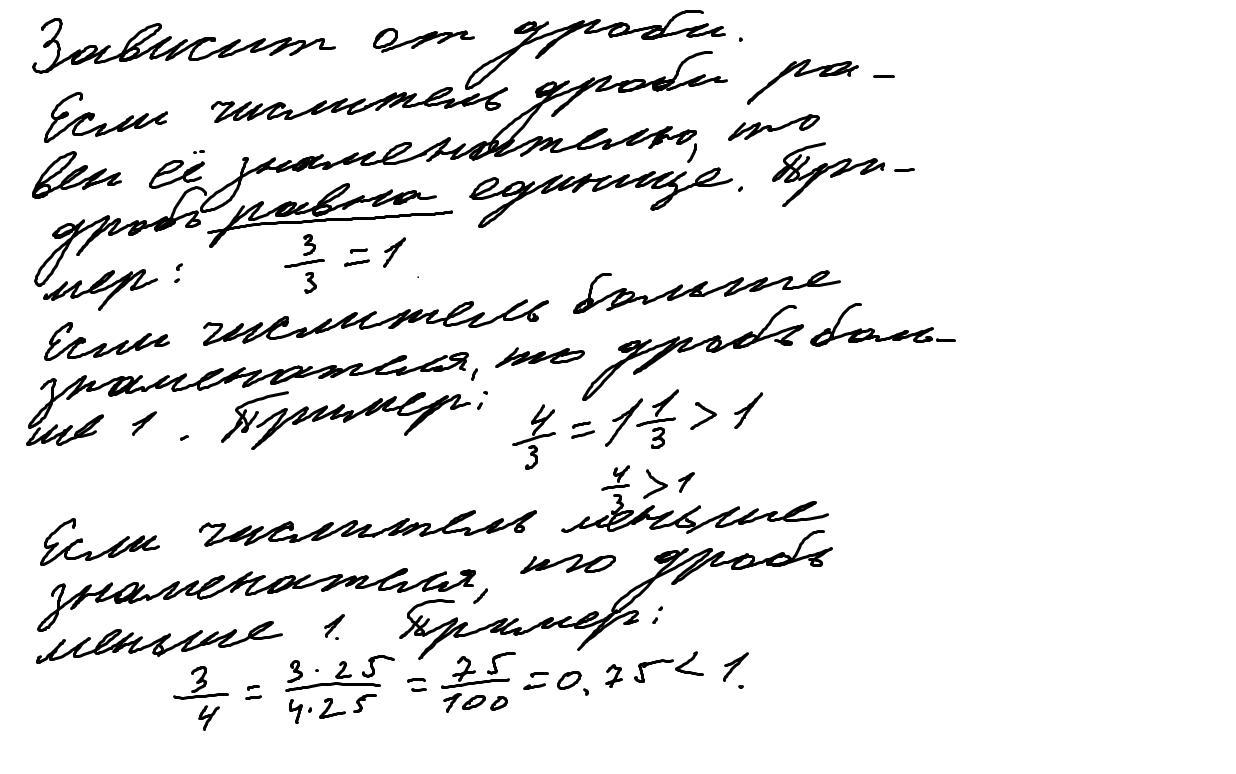 Зависит от дроби.
Если числитель дроби ра-
вен её знаменателю, то
дробь равна единице. При-
мер: 3/3 = 1
Если числитель больше
знаменателя, то дробь боль-
ше 1. Пример: 4/3 = 1 1/3 > 1
4/3 > 1
Если числитель меньше
знаменателя, то дробь
меньше 1. Пример:
3/4 = 3·25/4·25 = 75/100 = 0,75 < 1.